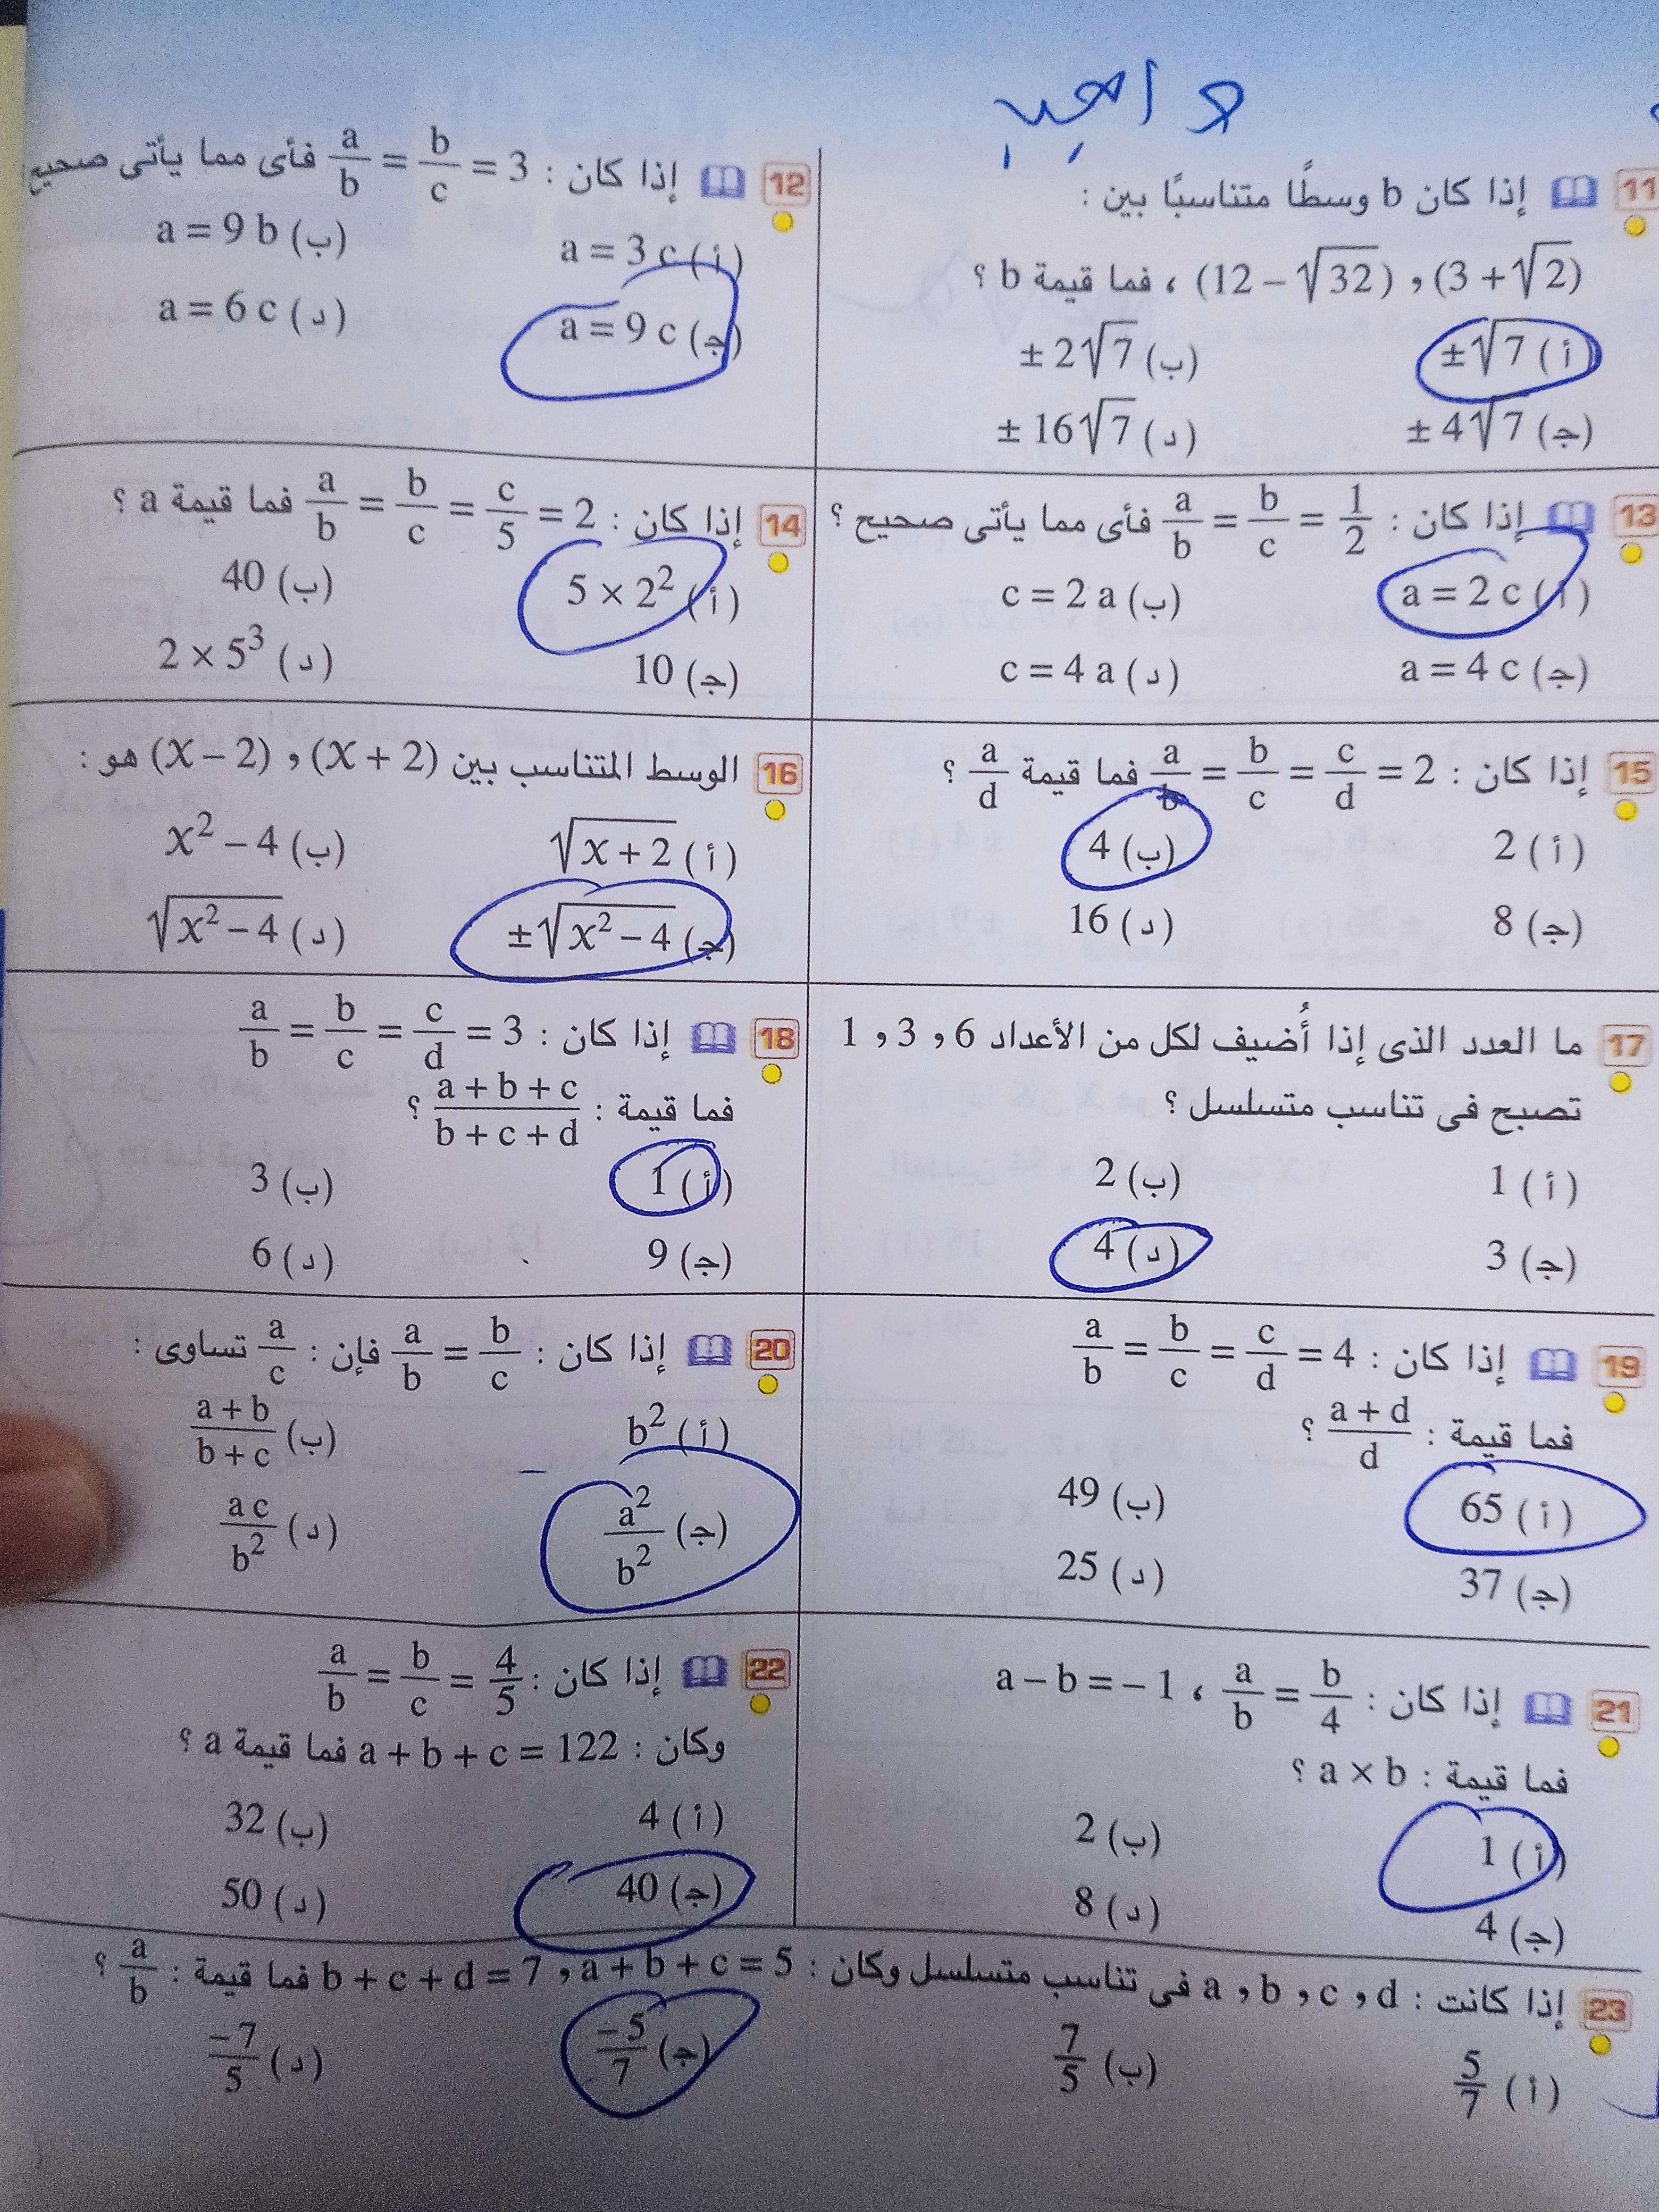 واجب
11 إذا كان b وسطًا متناسبًا بين :
(3 + √2) , (12 – √32) ، فما قيمة b ؟
(أ) ± √7 (ب) ± 2√7
(ج) ± 4√7 (د) ± 16√7
12 إذا كان : a/b = b/c = 3 فأى مما يأتى صحيح
(أ) a = 3 c (ب) a = 9 b
(ج) a = 9 c (د) a = 6 c
13 إذا كان : a/b = b/c = 1/2 فأى مما يأتى صحيح ؟
(أ) a = 2 c (ب) c = 2 a
(ج) a = 4 c (د) c = 4 a
14 إذا كان : a/b = b/c = c/5 = 2 فما قيمة a ؟
(أ) 5 × 2² (ب) 40
(ج) 10 (د) 2 × 5³
15 إذا كان : a/b = b/c = c/d = 2 فما قيمة a/d ؟
(أ) 2 (ب) 4
(ج) 8 (د) 16
16 الوسط المتناسب بين (X + 2) , (X – 2) هو :
(أ) √(X + 2) (ب) X² – 4
(ج) ± √(X² – 4) (د) √(X² – 4)
17 ما العدد الذى إذا أُضيف لكل من الأعداد 6 , 3 , 1
تصبح فى تناسب متسلسل ؟
(أ) 1 (ب) 2
(ج) 3 (د) 4
18 إذا كان : a/b = b/c = c/d = 3
فما قيمة : (a + b + c)/(b + c + d) ؟
(أ) 1 (ب) 3
(ج) 9 (د) 6
19 إذا كان : a/b = b/c = c/d = 4
فما قيمة : (a + d)/d ؟
(أ) 65 (ب) 49
(ج) 37 (د) 25
20 إذا كان : a/b = b/c فإن : a/c تساوى :
(أ) b² (ب) (a + b)/(b + c)
(ج) a²/b² (د) a c/b²
21 إذا كان : a/b = b/4 ، a – b = – 1
فما قيمة : a × b ؟
(أ) 1 (ب) 2
(ج) 4 (د) 8
22 إذا كان : a/b = b/c = 4/5
وكان : a + b + c = 122 فما قيمة a ؟
(أ) 4 (ب) 32
(ج) 40 (د) 50
23 إذا كانت : a , b , c , d فى تناسب متسلسل وكان : a + b + c = 5 , b + c + d = 7 فما قيمة : a/b ؟
(أ) 5/7 (ب) 7/5 (ج) –5/7 (د) –7/5